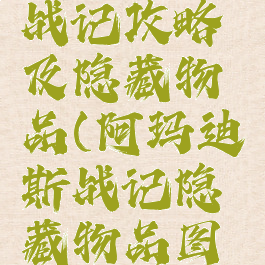 战记攻略
及隐藏物
品(阿玛迪
斯战记隐
藏物品图